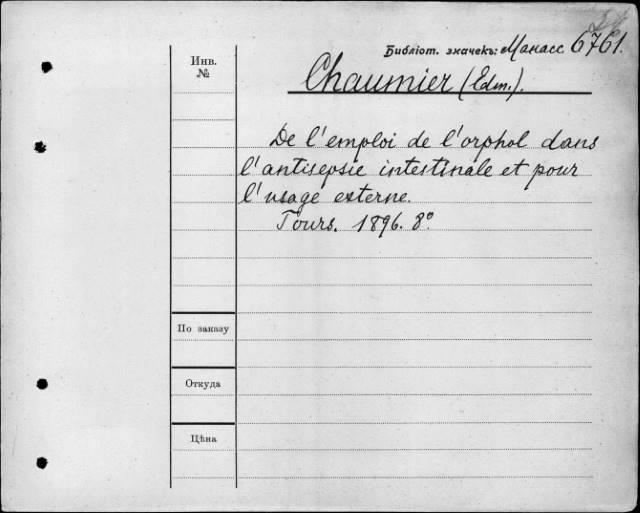 Библіот. значекъ: Манасс 6761.
Инв. №
Chaumier (Edm.).
De l'emploi de l'orphol dans
l'antisepsie intestinale et pour
l'usage externe.
Tours. 1896. 8°.
По заказу
Откуда
Цѣна